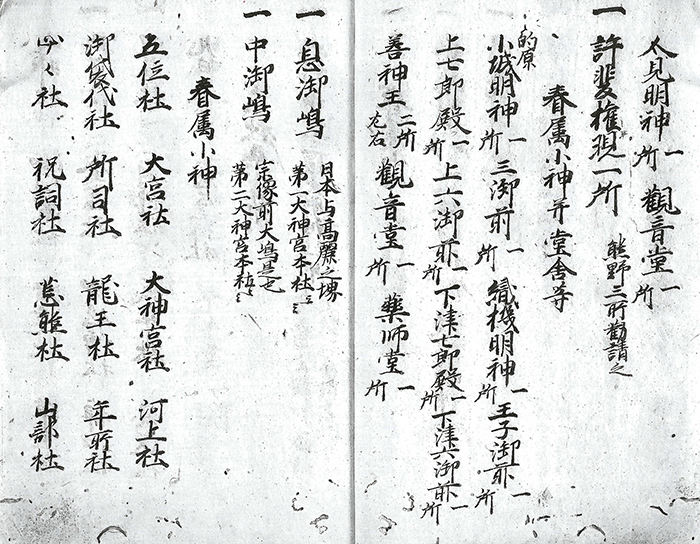 大見明神一所 觀音堂一所
一 許斐權現一所 熊野三所勸請之
眷属小神并堂舎等
的原
小城明神一所 三御前一所 織機明神一所 王子御前一所
上七郎殿一所 上六御前一所 下津七郎殿一所 下津六御前一所
善神王二所左右 觀音堂一所 藥師堂一所
一 息御嶋 日本与高麗之堺
第一大神宮本社云々
一 中御嶋 宗像前大嶋是也
第二大神宮本社云々
眷属小神
五位社 大宮社 大神宮社 河上社
御袋代社 所司社 龍王社 年所社
山社 祝詞社 社 山部社